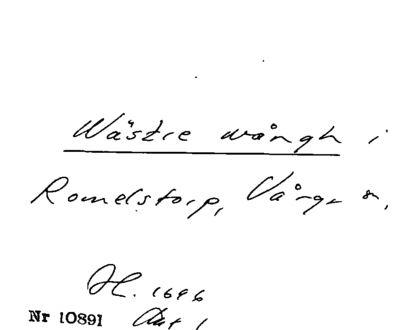 Wästre wångh i
Romelstorp, Vånga sn.
H. 1696
Nr 10891 Akt 1